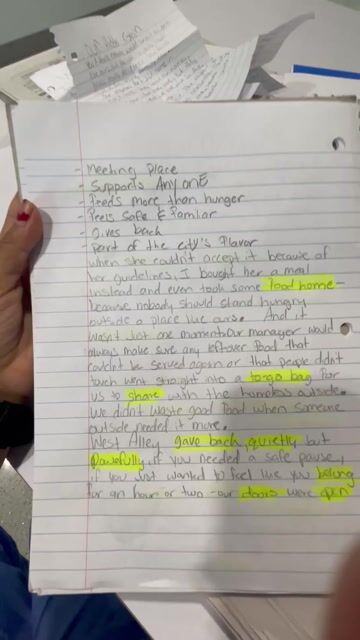 - Meeting place
- Supports AnyonE
- Feeds more than hunger
- Feels Safe & Familiar
- Gives back
- Part of the city's flavor
when she couldn't accept it because of
her guidelines, I bought her a meal
instead and even took some food home-
because nobody should stand hungry
outside a place like ours. And it
wasn't just one moment. Our manager would
always make sure any leftover food that
couldn't be served again or that people didn't
touch went straight into a togo bag for
us to share with the homeless outside.
We didn't waste good food when someone
outside needed it more.
West Alley gave back, quietly but
Powerfully if you needed a safe pause,
if you just wanted to feel like you belong
for an hour or two - our doors were open